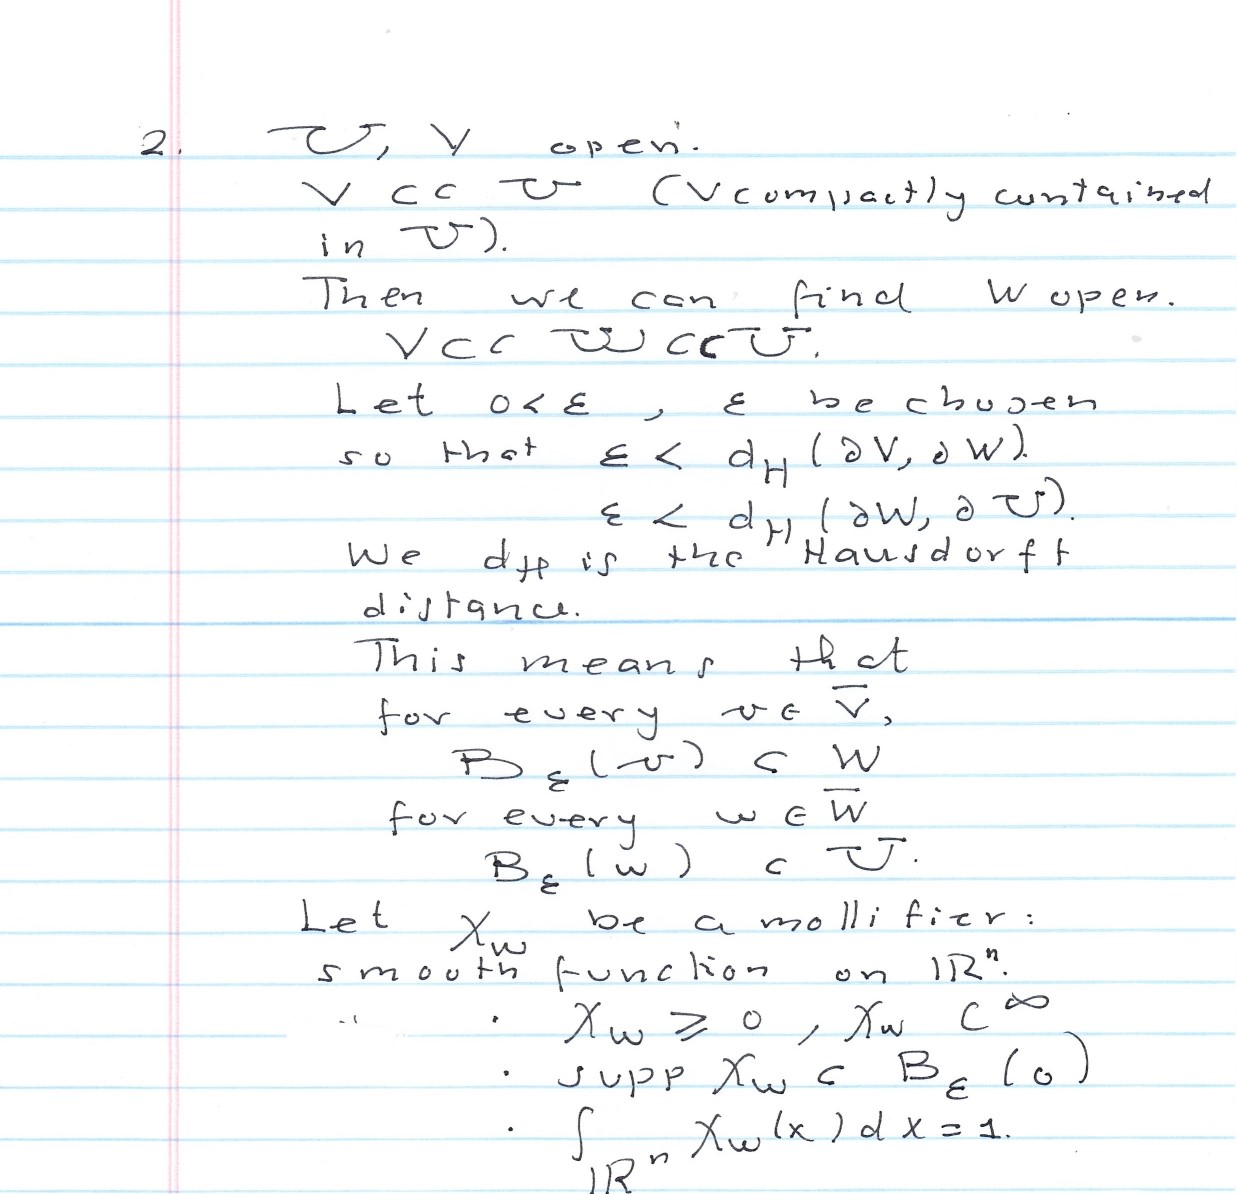 2. U, V open.
V ⊂⊂ U (V compactly contained
in U).
Then we can find W open.
V ⊂⊂ W ⊂⊂ U.
Let 0 < ε, ε be chosen
so that ε < d_H (∂V, ∂W).
ε < d_H (∂W, ∂U).
We d_H is the Hausdorff
distance.
This means that
for every v ∈ V̅,
B_ε (v) ⊂ W
for every w ∈ W̅
B_ε (w) ⊂ U.
Let χ_w be a mollifier:
smooth function on ℝⁿ.
· χ_w ⩾ 0, χ_w C^∞
· supp χ_w ⊂ B_ε (0)
· ∫_{ℝⁿ} χ_w (x) dx = 1.